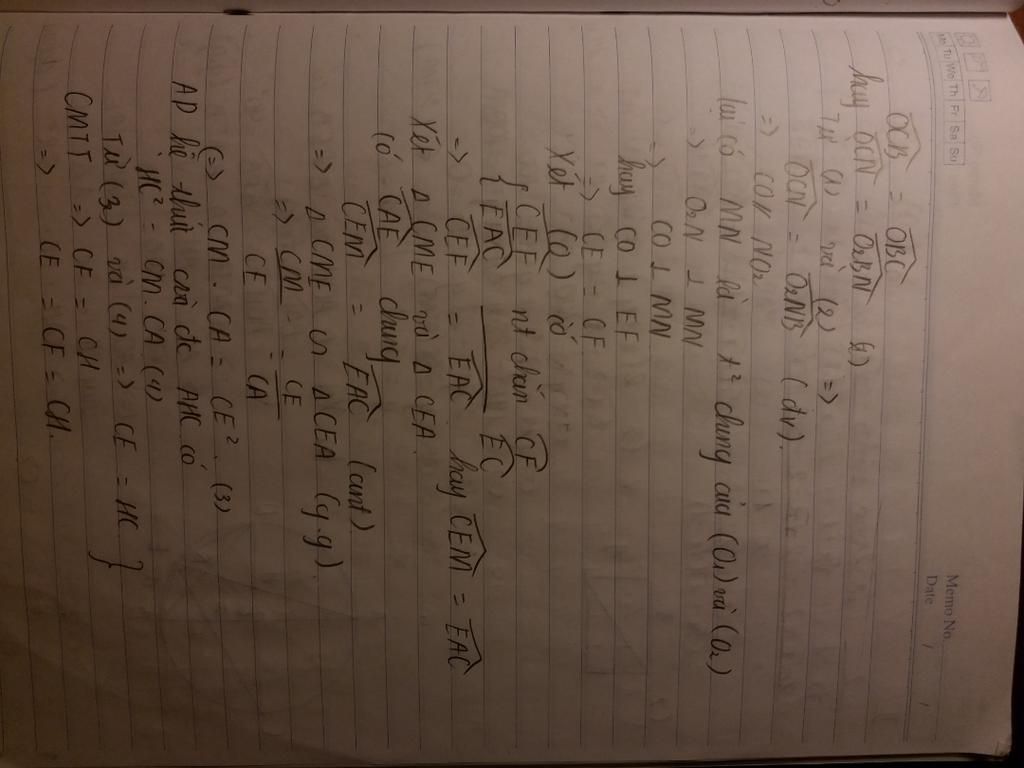 Memo No.
Date / /
Mo Tu We Th Fr Sa Su
OCB = OBC
hay OCN = O₂BN (2)
Từ (1) và (2) =>
OCN = O₂NB (đv).
=> CO// NO₂
lại có MN là t² chung của (O₁) và (O₂)
=> O₂N ⊥ MN
=> CO ⊥ MN
hay CO ⊥ EF
=> CE = CF
Xét (O) có
{ CEF nt chắn CF
EAC EC
=> CEF = EAC hay CEM = EAC
Xét Δ CME và Δ CEA
Có CAE chung
CEM = EAC (cmt)
=> Δ CME ∽ Δ CEA (g.g)
=> CM / CE = CE / CA
(=) CM. CA = CE². (3)
AD hệ thức vào đc AHC có
HC² = CM. CA (4)
Từ (3) và (4) => CE = HC }
CMTT => CF = CH
=> CE = CF = CH.